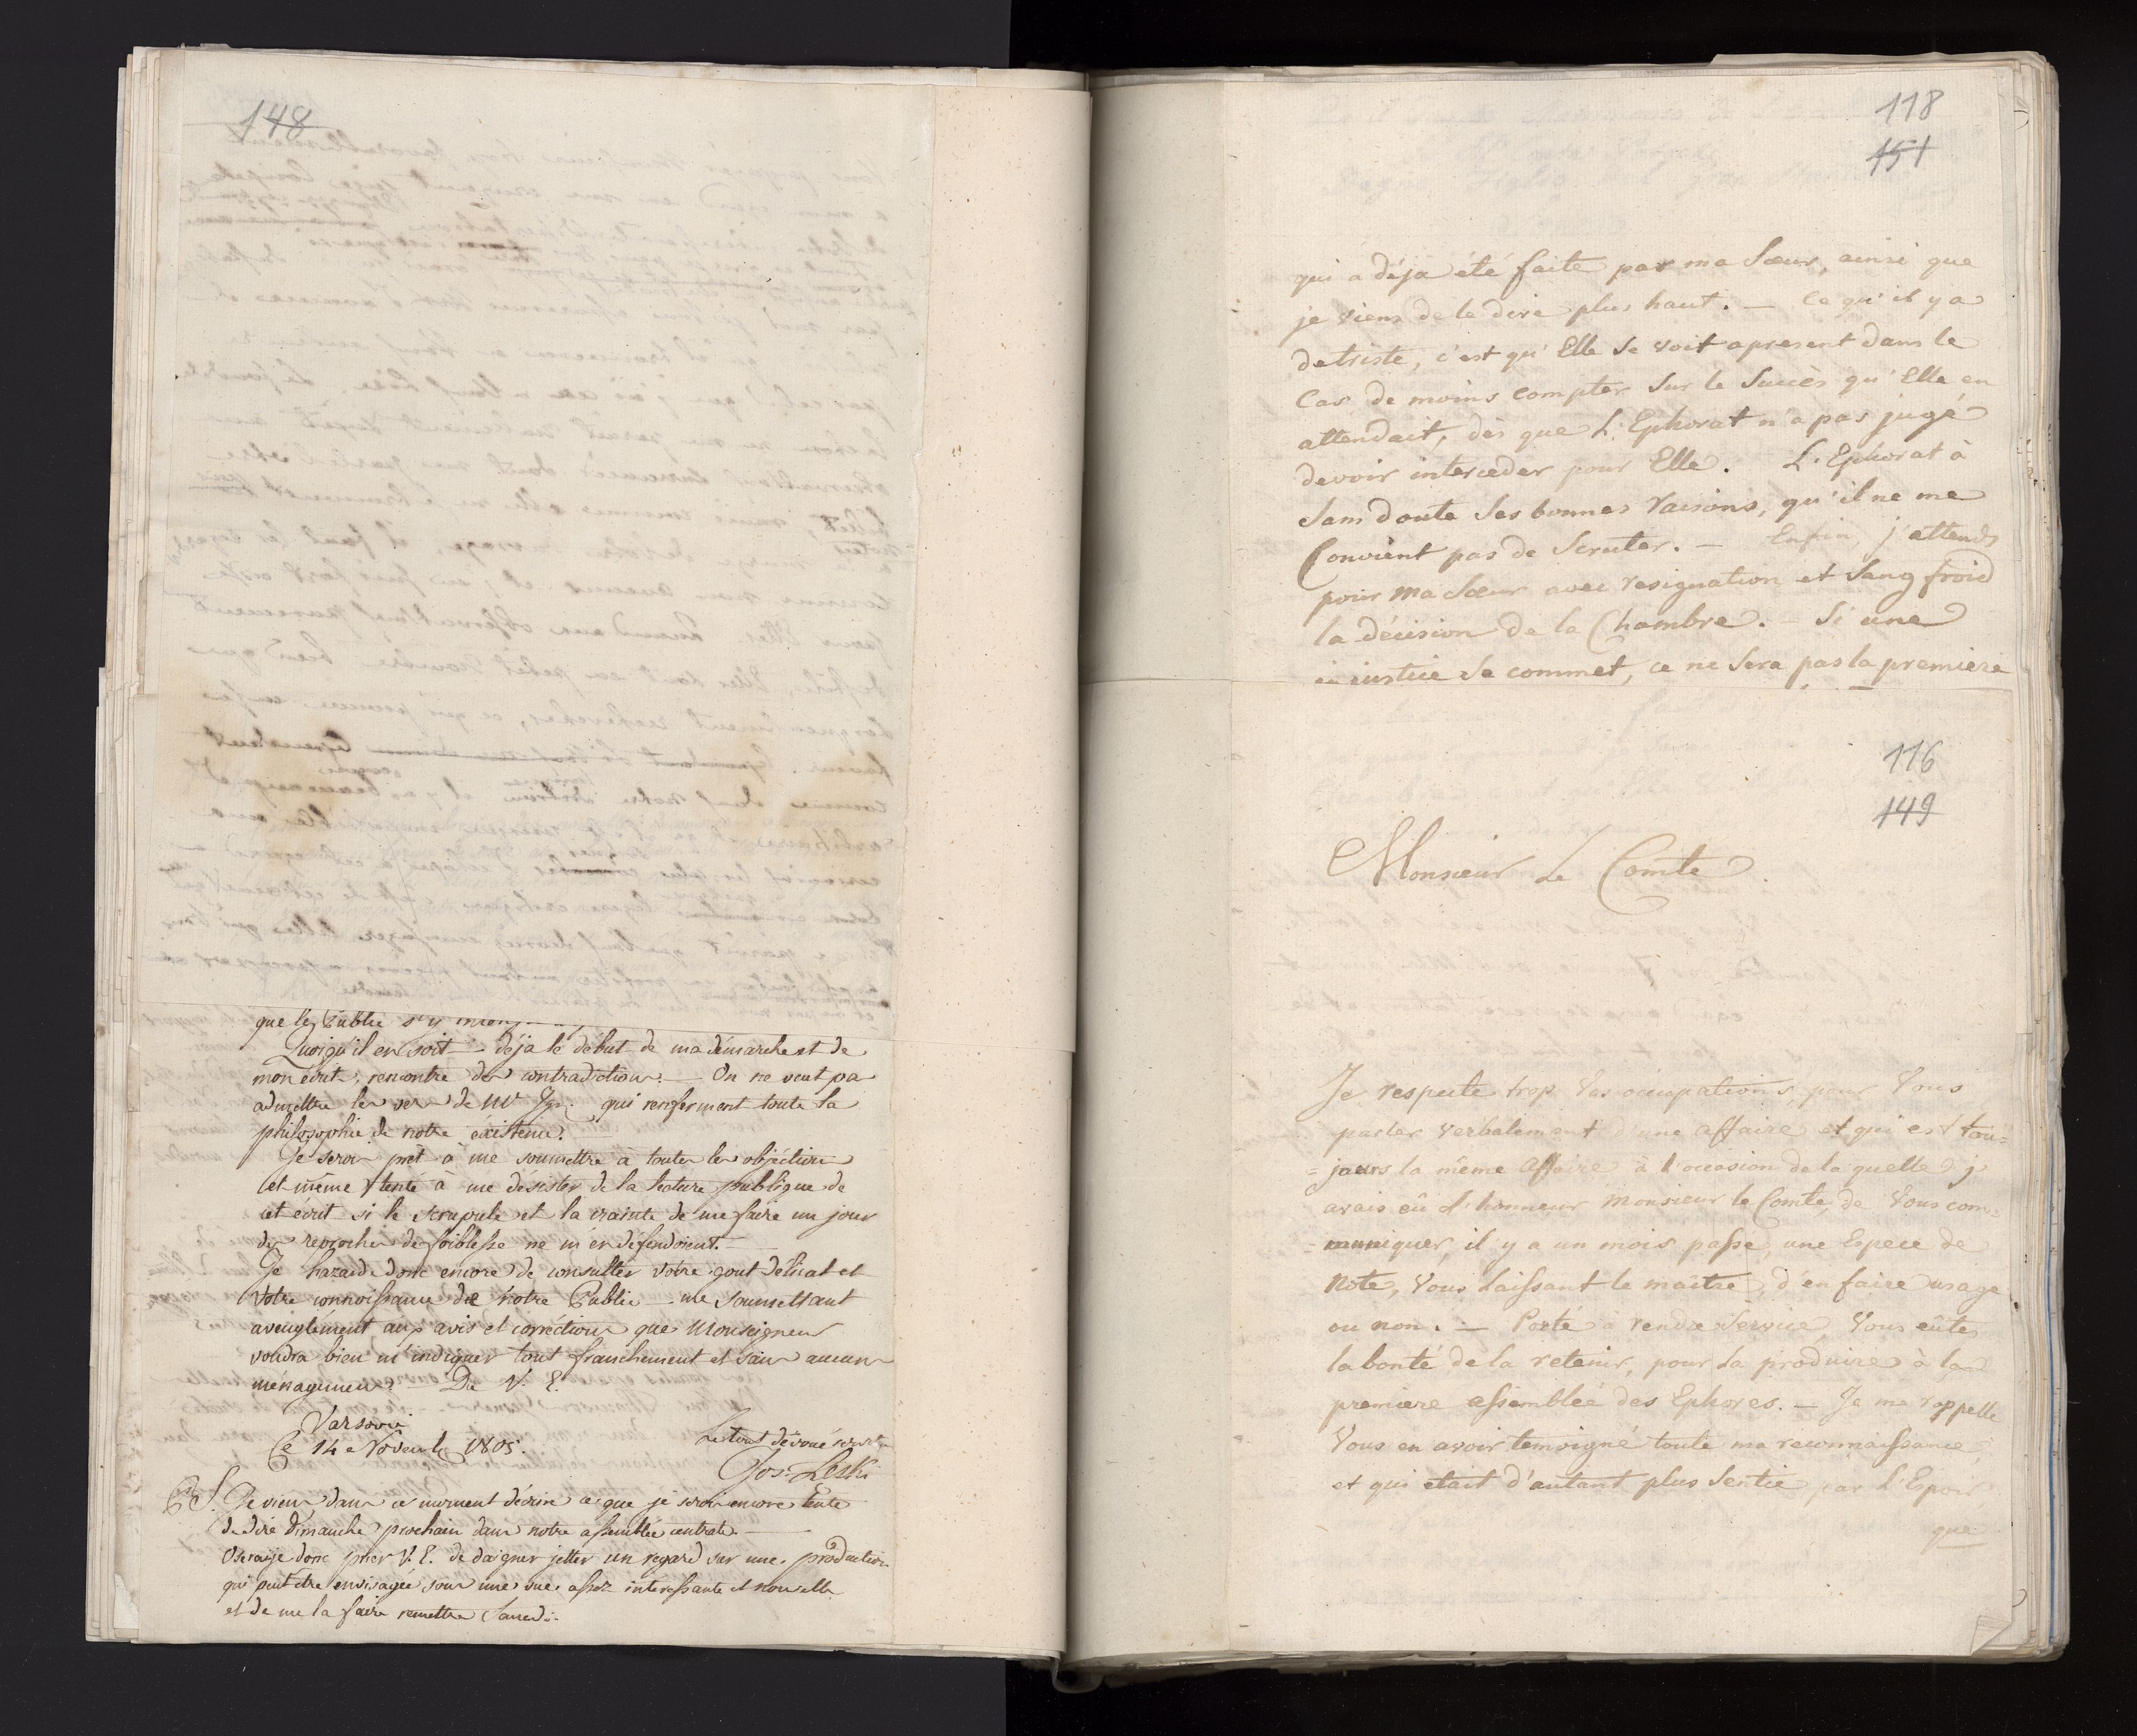 148
que le Public s'y
Quoiqu'il en soit — déja le début de ma démarche et de
mon écrit, rencontre des contradictions. — On ne veut pas
admettre les vers de Mr qui renferment toute la
philosophie de notre éxistence. —
Je serois prêt à me soumettre à toutes les objections
et même tenté à me désister de la lecture publique de
cet écrit si le scrupule et la crainte de me faire un jour
des reproches de foiblesse ne m'en défendoient. —
Je hazarde donc encore de consulter votre gout délicat et
Votre connoissance de notre Public — me soumettant
aveuglément aux avis et corrections que Monseigneur
voudra bien m'indiquer tout franchement et sans aucun
ménagement — De V. E.
Varsovie
Ce 14 Novemb 1805.
Le tout dévoué
Jos. Leski
P.S. Je viens dans ce moment d'écrire ce que je serois encore tenté
de dire dimanche prochain dans notre assemblée centrale. —
Oserai-je donc prier V. E. de daigner jetter un regard sur une production
qui peut être envisagée sous une vue assez intéressante et nouvelle
et de me la faire remettre Samedi.
118
151
qui a déja été faite par ma Sœur, ainsi que
je viens de le dire plus haut. — Ce qu'il y a
de triste, c'est qu'Elle se voit apresent dans le
Cas de moins compter Sur le Succès qu'Elle en
attendait, dès que L'Ephorat n'a pas jugé
devoir interceder pour Elle. L'Ephorat à
Sans doute Ses bonnes raisons, qu'il ne me
Convient pas de Scruter. — Enfin, j'attends
pour ma Sœur avec resignation et Sang froid
la décision de la Chambre. — Si une
injustice Se commet, ce ne Sera pas la premiere
116
149
Monsieur Le Comte
Je respecte trop Vos occupations, pour Vous
parler verbalement d'une affaire et qui est tou=
=jours la même Affaire à l'occasion de la quelle j'
avais eû l'honneur Monsieur le Comte, de Vous com=
=muniquer, il y a un mois passe, une Espece de
Note, Vous laissant le maître, d'en faire usage
ou non. — Porté à rendre Service, Vous eûtes
la bonté de la retenir, pour la produire à la
premiere assemblée des Ephores. — Je me rappelle
Vous en avoir temoigné toute ma reconnaissance,
et qui etait d'autant plus Sentie par L'Espoir
que